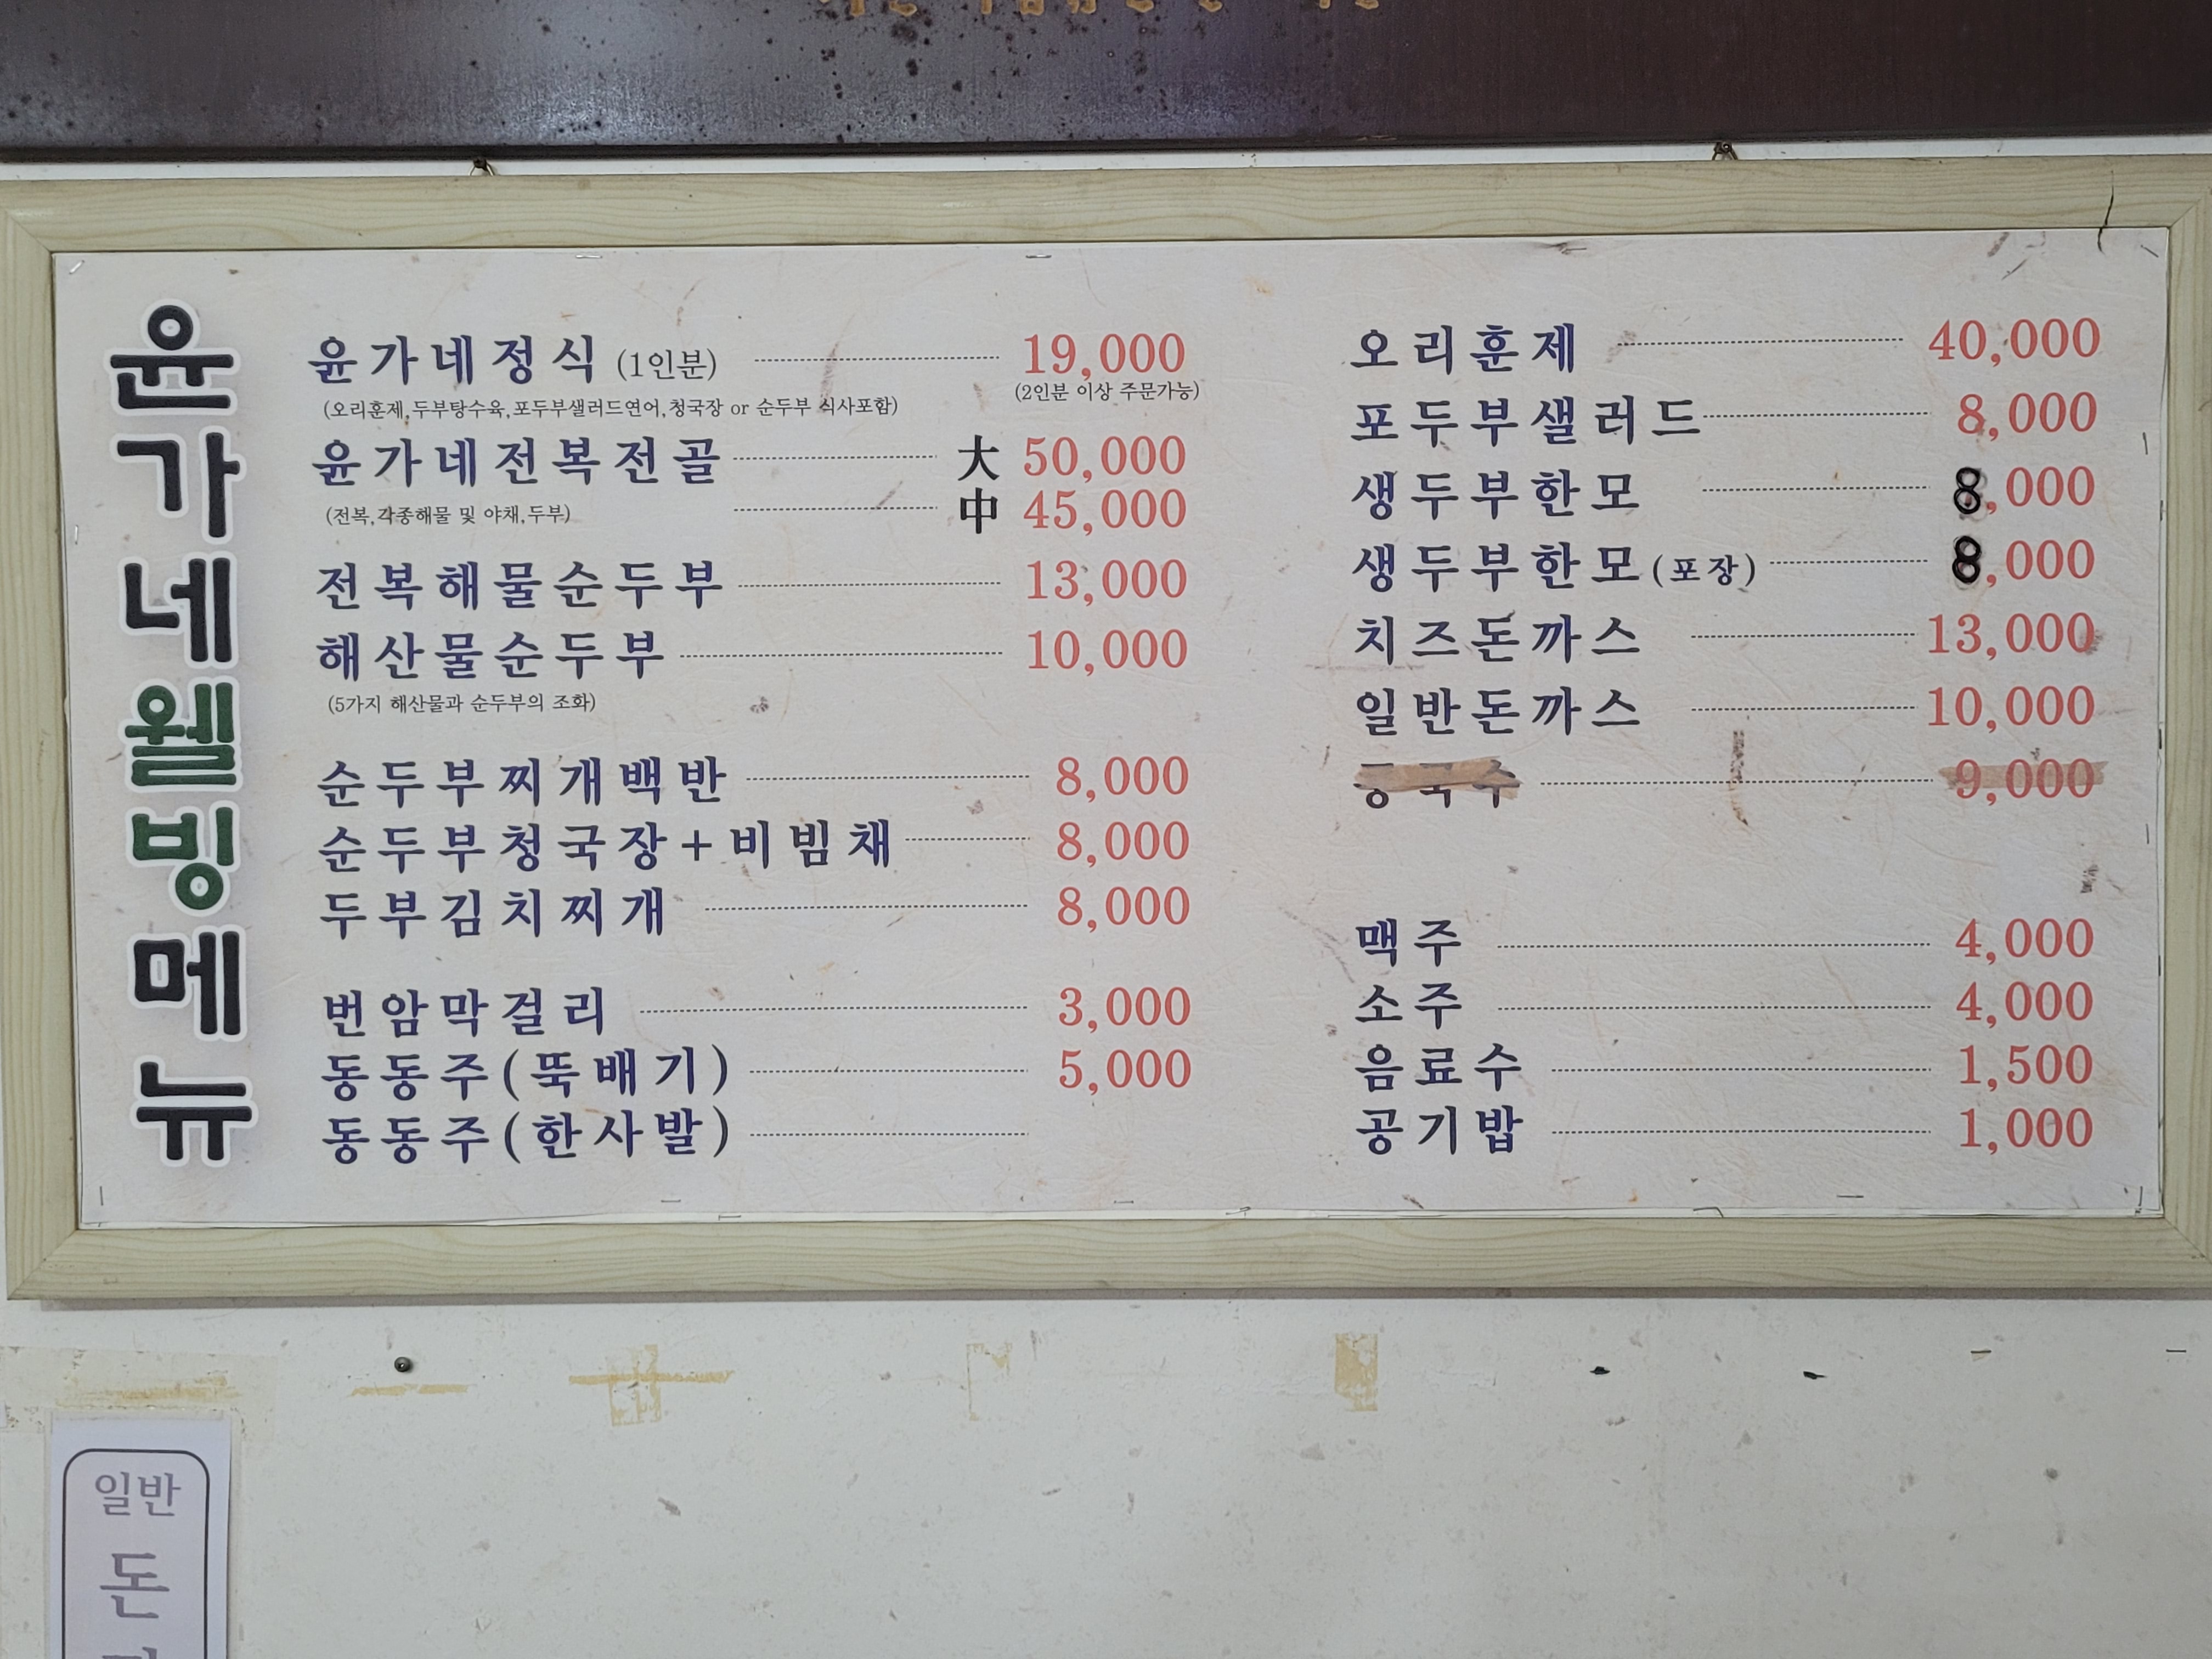 윤가네웰빙메뉴
윤가네정식 (1인분) 19,000
(2인분 이상 주문가능)
(오리훈제,두부탕수육,포두부샐러드연어,청국장 or 순두부 식사포함)
윤가네전복전골 大 50,000
(전복,각종해물 및 야채,두부) 中 45,000
전복해물순두부 13,000
해산물순두부 10,000
(5가지 해산물과 순두부의 조화)
순두부찌개백반 8,000
순두부청국장+비빔채 8,000
두부김치찌개 8,000
번암막걸리 3,000
동동주(뚝배기) 5,000
동동주(한사발)
오리훈제 40,000
포두부샐러드 8,000
생두부한모 8,000
생두부한모(포장) 8,000
치즈돈까스 13,000
일반돈까스 10,000
9,000
맥주 4,000
소주 4,000
음료수 1,500
공기밥 1,000
일반
돈